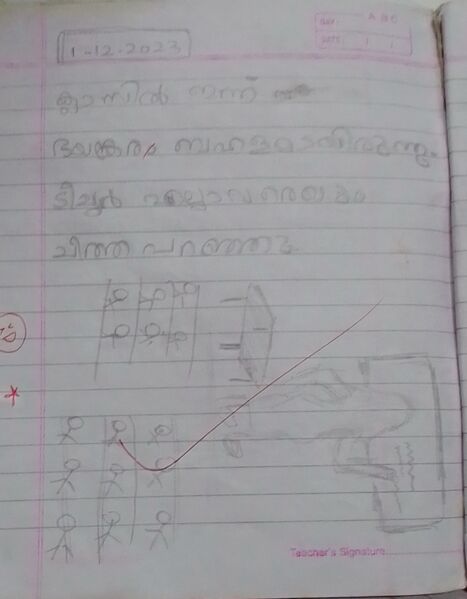 DAY: A B C
DATE:
1-12-2023
ക്ലാസിൽ ഇന്ന്
ഭയങ്കര ബഹളമായിരുന്നു.
ടീച്ചർ എല്ലാവരെയും
ചീത്ത പറഞ്ഞു
Teacher's Signature